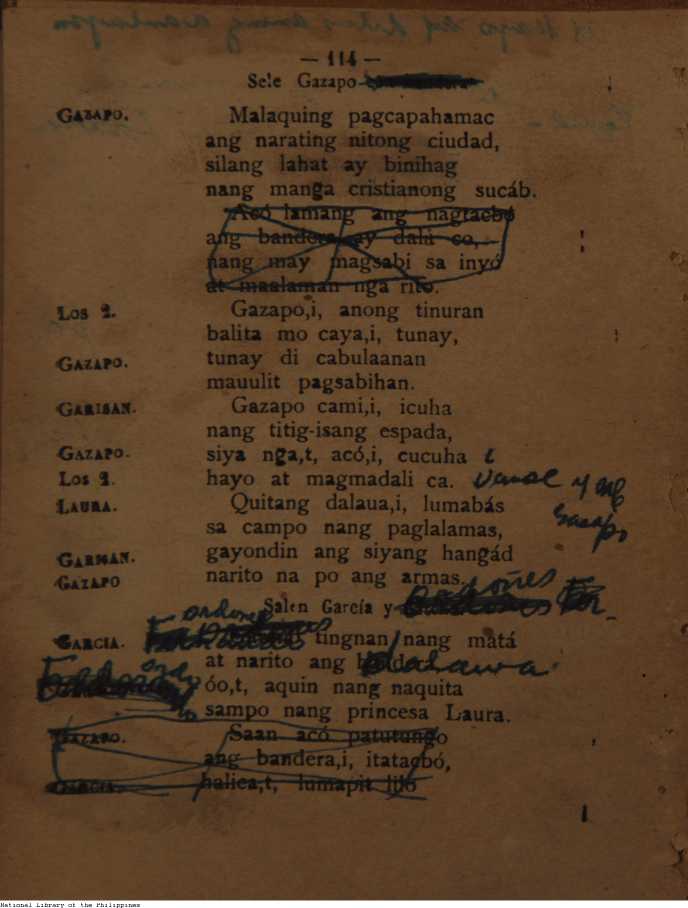 — 114 —
Sele Gazapo
GAZAPO. Malaquing pagcapahamac
ang narating nitong ciudad,
silang lahat ay binihag
nang manga cristianong sucáb.
Acó lamang ang nagtacbó
ang bandera ay dali co,
nang may magsabi sa inyó
at maalaman nga rito.
LOS 2. Gazapo,i, anong tinuran
balita mo caya,i, tunay,
GAZAPO. tunay di cabulaanan
mauulit pagsabihan.
GARISAN. Gazapo cami,i, icuha
nang titig-isang espada,
GAZAPO. siya nga,t, acó,i, cucuha
LOS 2. hayo at magmadali ca. y
LAURA. Quitang dalaua,i, lumabás
sa campo nang paglalamas,
GARMAN. gayondin ang siyang hangád
GAZAPO narito na po ang armas.
Salen García y
ordoñes
GARCIA. tingnan nang matá
at narito ang
óo,t, aquin nang naquita
sampo nang princesa Laura.
GAZAPO. Saan acó patutungo
ang bandera,i, itatacbó,
GARCIA. halica,t, lumapit lilo
National Library of the Philippines